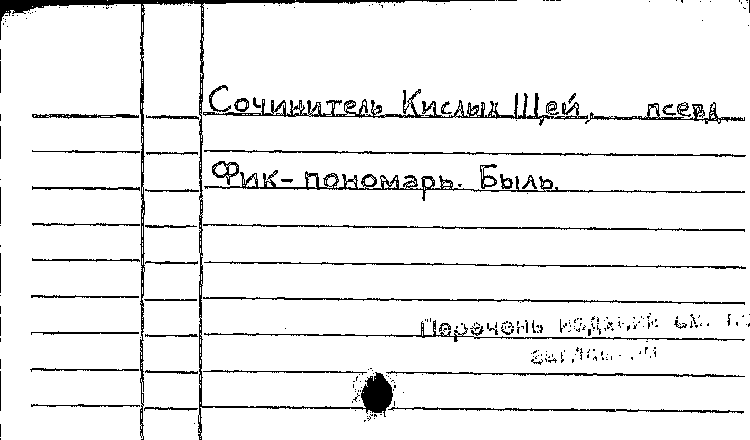 Сочинитель Кислых Щей, псевд
Фик-пономарь. Быль.
Перечень изданий см. на